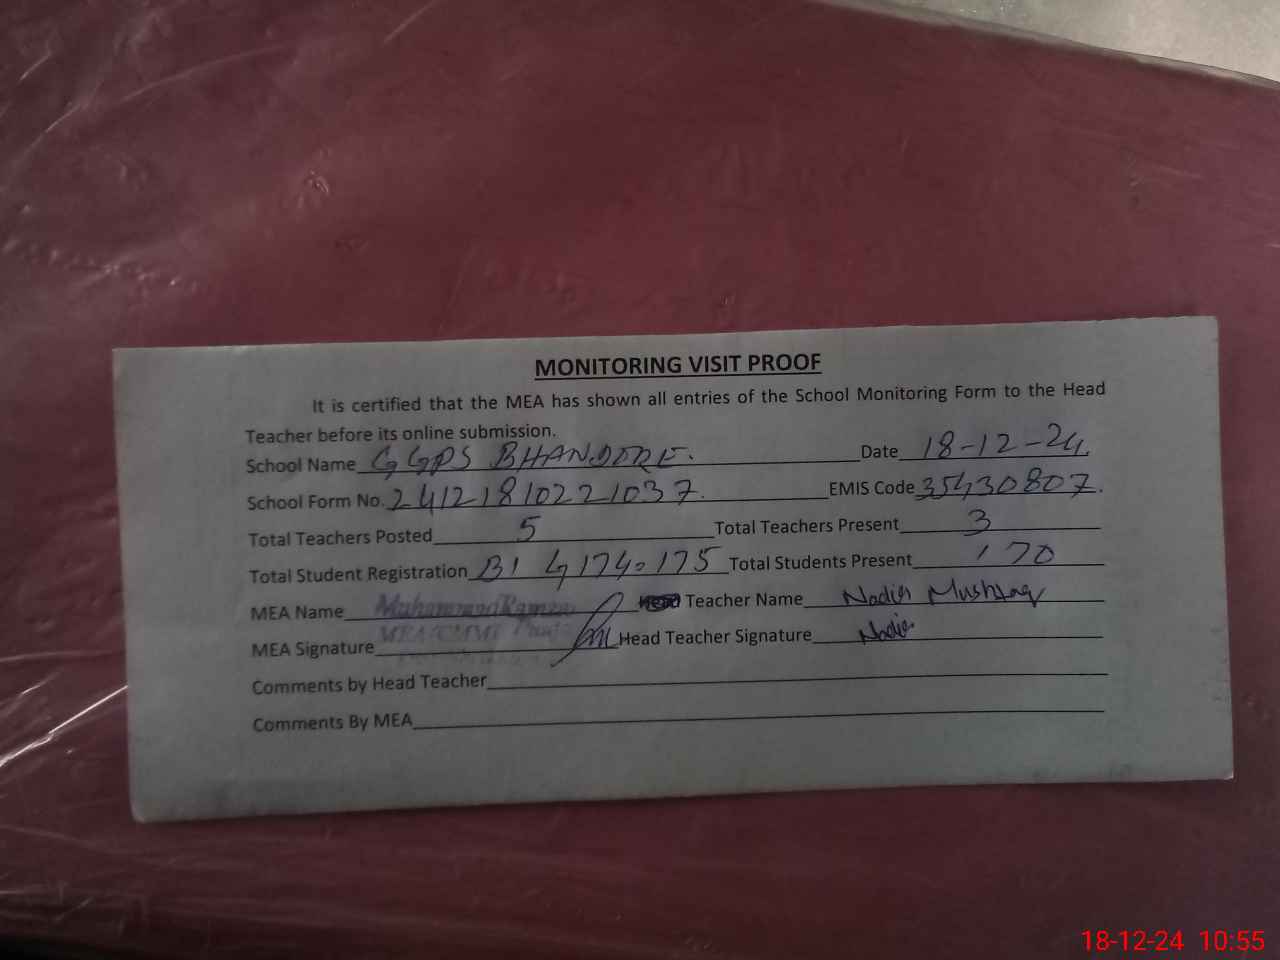 MONITORING VISIT PROOF
It is certified that the MEA has shown all entries of the School Monitoring Form to the Head
Teacher before its online submission.
School Name GGPS BHANDORE. Date 18-12-24.
School Form No. 24121810221037. EMIS Code 35430807.
Total Teachers Posted 5 Total Teachers Present 3
Total Student Registration B1 G174=175 Total Students Present 170
MEA Name Muhammad Teacher Name Nadia Mushtaq
MEA Signature Head Teacher Signature Nadia
Comments by Head Teacher
Comments By MEA
18-12-24 10:55